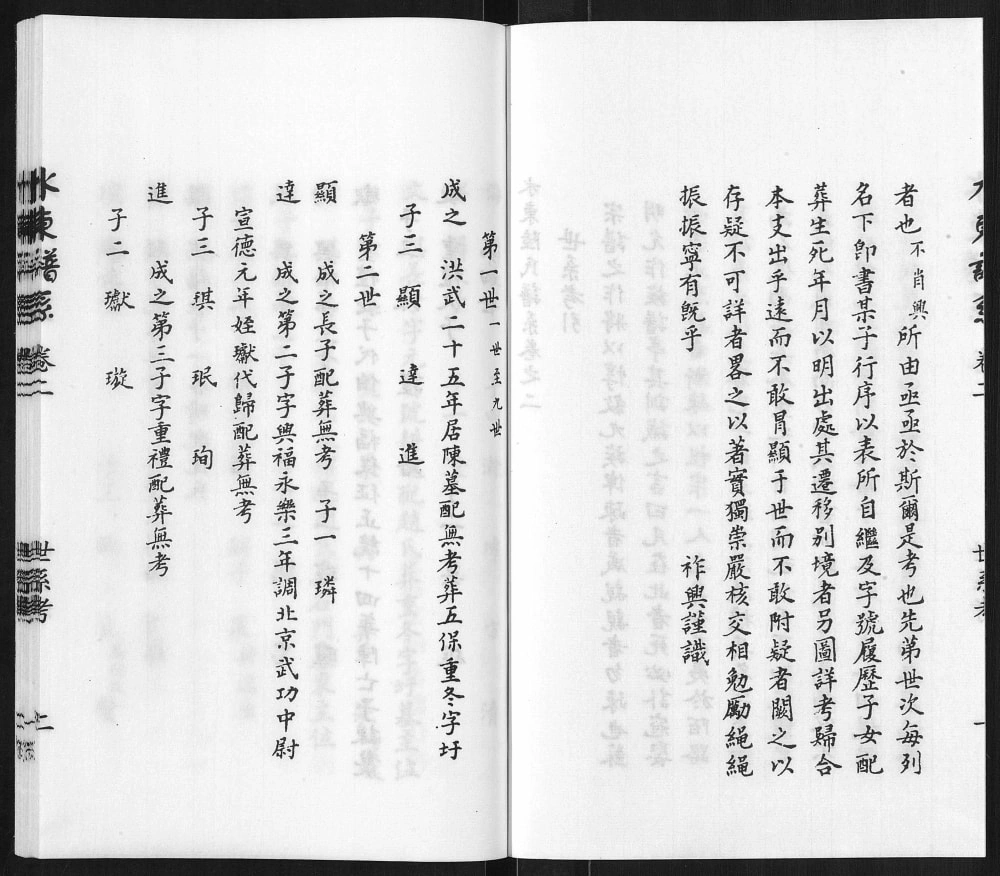 者也不肖興所由亟亟於斯爾是考也先苐世次每列
名下卽書某子行序以表所自繼及字號履歷子女配
葬生死年月以明出處其遷移別境者另圖詳考歸合
本支出乎遠而不敢冒顯于世而不敢附疑者闕之以
存疑不可詳者畧之以著實獨崇嚴核交相勉勵繩繩
振振寧有旣乎　祚興謹識
第一世一世至九世
成之　洪武二十五年居陳墓配無考葬五保重冬字圩
子三　顯　達　進
第二世
顯　成之長子配葬無考　子一　璘
達　成之第二子字興福永樂三年調北京武功中尉
宣德元年姪瓛代歸配葬無考
子三　琪　珉　珣
進　成之第三子字重禮配葬無考
子二　瓛　璇
水東譜系　卷二　世系考　二